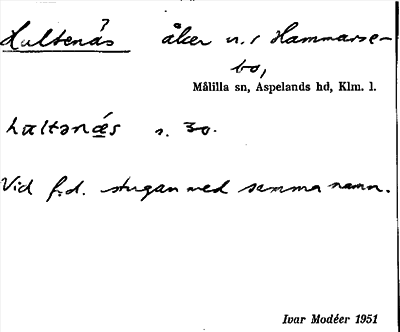 Hultenäs åker n. r Hammarse-
bo,
Målilla sn, Aspelands hd, Klm. l.
hɑltənǽs s. 30.
Vid f.d. stugan med samma namn.
Ivar Modéer 1951